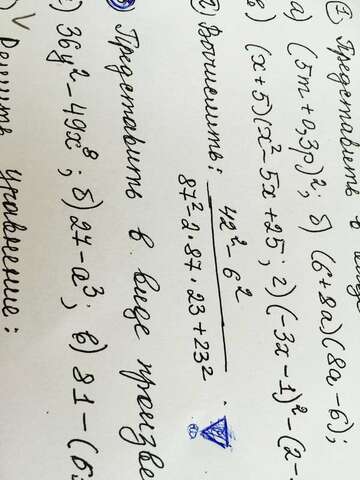 1) Представить в виде
а) (5m+0,3p)²; б) (6+8a)(8a-6);
в) (x+5)(x²-5x+25; г) (-3x-1)²-(2-
2) Вычислить: 42²-6² / 87²-2·87·23+23² .
Представить в виде произве
36y²-49x⁸; б) 27-a³; в) 81-(6
Решить уравнение: